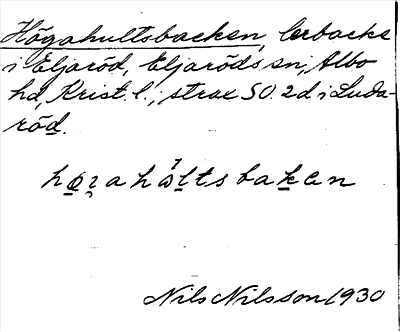 Högahultsbacken, lerbacke
i Eljaröd, Eljaröds sn, Albo
hd, Krist. l., strax SO. 2d i Luda-
röd.
Nils Nilsson 1930